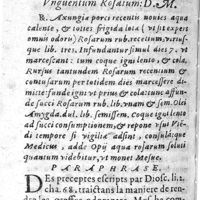 Vnguentum Rosatum: D. M.
R. Axungiæ porci recentis nouies aqua
calente, & toties frigida lotæ (vt sit expers
omnis odoris) Rosarum rub. recētium, vtrius-
que lib. tres. Infundantur simul dies 7. vt
marcescant: tum coque igni lento, & cola,
Rursus tantundem Rosarum recentium &
contusarum per totidem dies marcescere di-
mitte: funde igni vt prius & cola: tum affun-
de succi Rosarum rub. lib. vnam & sem. Olei
Amygda. dul. lib. semissem, Coque igni lento
ad succi consumptionem, & repone vsui. Vi-
de, tempore si vigiliæ adsint, consulíque
Medicus, addē Opij aqua rosarum soluti
quantum videbitur, vt monet Mesue.
PARAPHRASE.
Des preceptes escripts par Diosc. li. 1.
cha. 68. traictans la maniere de ren-